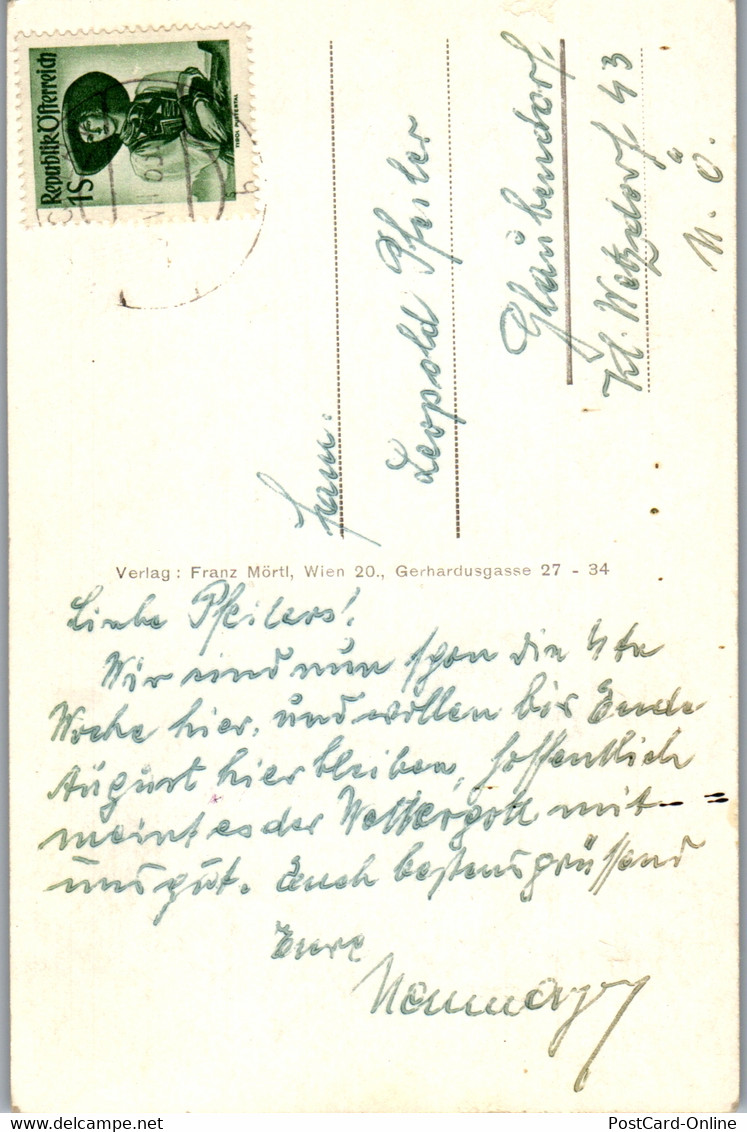 Republik Österreich
1S
TIROL PUSTERTAL
Fam.
Leopold Pfeiler
Glaubendorf.
Kl. Wetzdorf 43
N. Ö.
Verlag : Franz Mörtl, Wien 20., Gerhardusgasse 27 - 34
Liebe Pfeilers!
Wir sind nun schon die 4te
Woche hier, und wollen bis Ende
August hier bleiben, hoffentlich
meint es der Wettergott mit
uns gut. Euch bestens grüssend
Eure
Neumayer
PostCard-Online